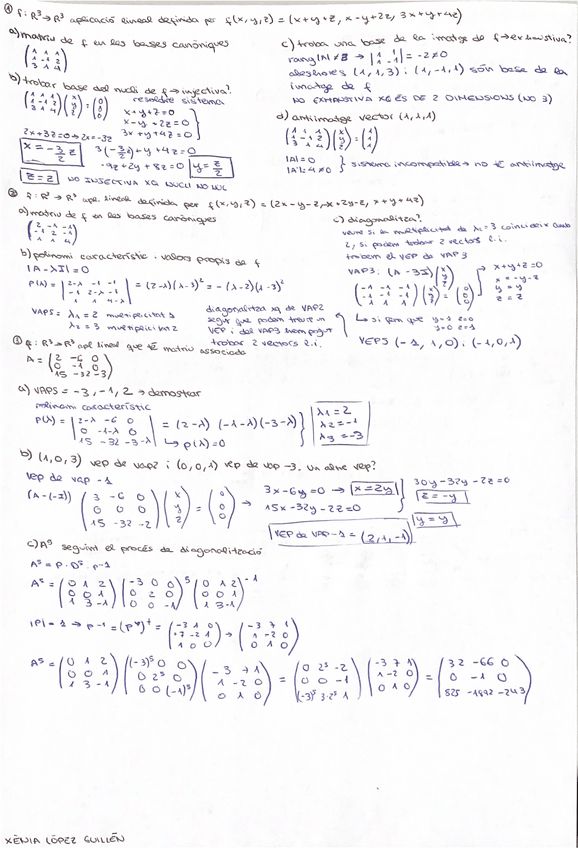 ① f: R³→R³ aplicació lineal definida per f(x,y,z)=(x+y+z, x-y+2z, 3x+y+4z)
a) matriu de f en les bases canòniques
(1 1 1
1 -1 2
3 1 4)
b) trobar base del nucli de f → injectiva?
(1 1 1
1 -1 2
3 1 4) (x y z) = (0 0 0) resoldre sistema
x+y+z=0
x-y+2z=0
3x+y+4z=0
2x+3z=0 → 2x=-3z
x=-3/2 z
3(-3/2 z)+y+4z=0
-9z+2y+8z=0
y=z/2
z=z
NO INJECTIVA XQ NUCLI NO NUL
c) troba una base de la imatge de f → exhaustiva?
rang|A|≠3 → |1 1
1 -1| = -2≠0
aleshores (1,1,3) i (1,-1,1) són base de la
imatge de f
NO EXHAUSTIVA XQ ÉS DE 2 DIMENSIONS (NO 3)
d) antiimatge vector (1,1,1)
(1 1 1
1 -1 2
3 1 4) (x y z) = (1 1 1)
|A|=0
|A'|≠0
} sistema incompatible → no té antiimatge
② f: R³→R³ apl. lineal definida per f(x,y,z)=(2x-y-z, -x+2y-z, x+y+4z)
a) matriu de f en les bases canòniques
(2 -1 -1
-1 2 -1
1 1 4)
b) polinomi característic i valors propis de f
|A-λI|=0
P(λ)= |2-λ -1 -1
-1 2-λ -1
1 1 4-λ| = (2-λ)(λ-3)² = -(λ-2)(λ-3)²
VAPS = λ₁=2 multiplicitat 1
λ₂=3 multiplicitat 2
c) diagonalitza?
veure si la multiplicitat de λ=3 coincideix amb
2, si podem trobar 2 vectors l.i.
trobem el VEP de VAP 3
VAP3: (A-3I)(x y z)
(-1 -1 -1
-1 -1 -1
1 1 1) (x y z) = (0 0 0)
x+y+z=0
x=-y-z
y=y
z=z
↳ si fem que y=1 z=0
y=0 z=1
VEPS (-1,1,0) i (-1,0,1)
diagonalitza xq de VAP2
segur que podem treure un
VEP i del VAP3 hem pogut
trobar 2 vectors l.i.
③ f: R³→R³ apl lineal que té matriu associada
A = (2 -6 0
0 -1 0
15 -32 -3)
a) VAPS = -3, -1, 2 → demostrar
polinomi característic
P(λ)= |2-λ -6 0
0 -1-λ 0
15 -32 -3-λ| = (2-λ)(-1-λ)(-3-λ)
↳ p(λ)=0
λ₁=2
λ₂=-1
λ₃=-3
b) (1,0,3) vep de vap 2 i (0,0,1) vep de vap -3. Un altre vep?
vep de vap -1
(A-(-I)) (3 -6 0
0 0 0
15 -32 -2) (x y z) = (0 0 0) →
3x-6y=0 → x=2y
15x-32y-2z=0
30y-32y-2z=0
z=-y
y=y
VEP de VAP-1 = (2,1,-1)
c) A⁵ seguint el procés de diagonalització
A⁵ = P·D⁵·P⁻¹
A⁵ = (0 1 2
0 0 1
1 3 -1) (-3 0 0
0 2 0
0 0 -1)⁵ (0 1 2
0 0 1
1 3 -1)⁻¹
|P|=1 → P⁻¹ = = (-3 1 0
-7 -2 1
1 0 0) → (-3 7 1
1 -2 0
0 1 0)
A⁵ = (0 1 2
0 0 1
1 3 -1) ((-3)⁵ 0 0
0 2⁵ 0
0 0 (-1)⁵) (-3 7 1
1 -2 0
0 1 0) = (0 2⁵ -2
0 0 -1
(-3)⁵ 3·2⁵ 1) (-3 7 1
1 -2 0
0 1 0) = (32 -66 0
0 -1 0
825 -1892 -243)
XÈNIA LÓPEZ GUILLÉN